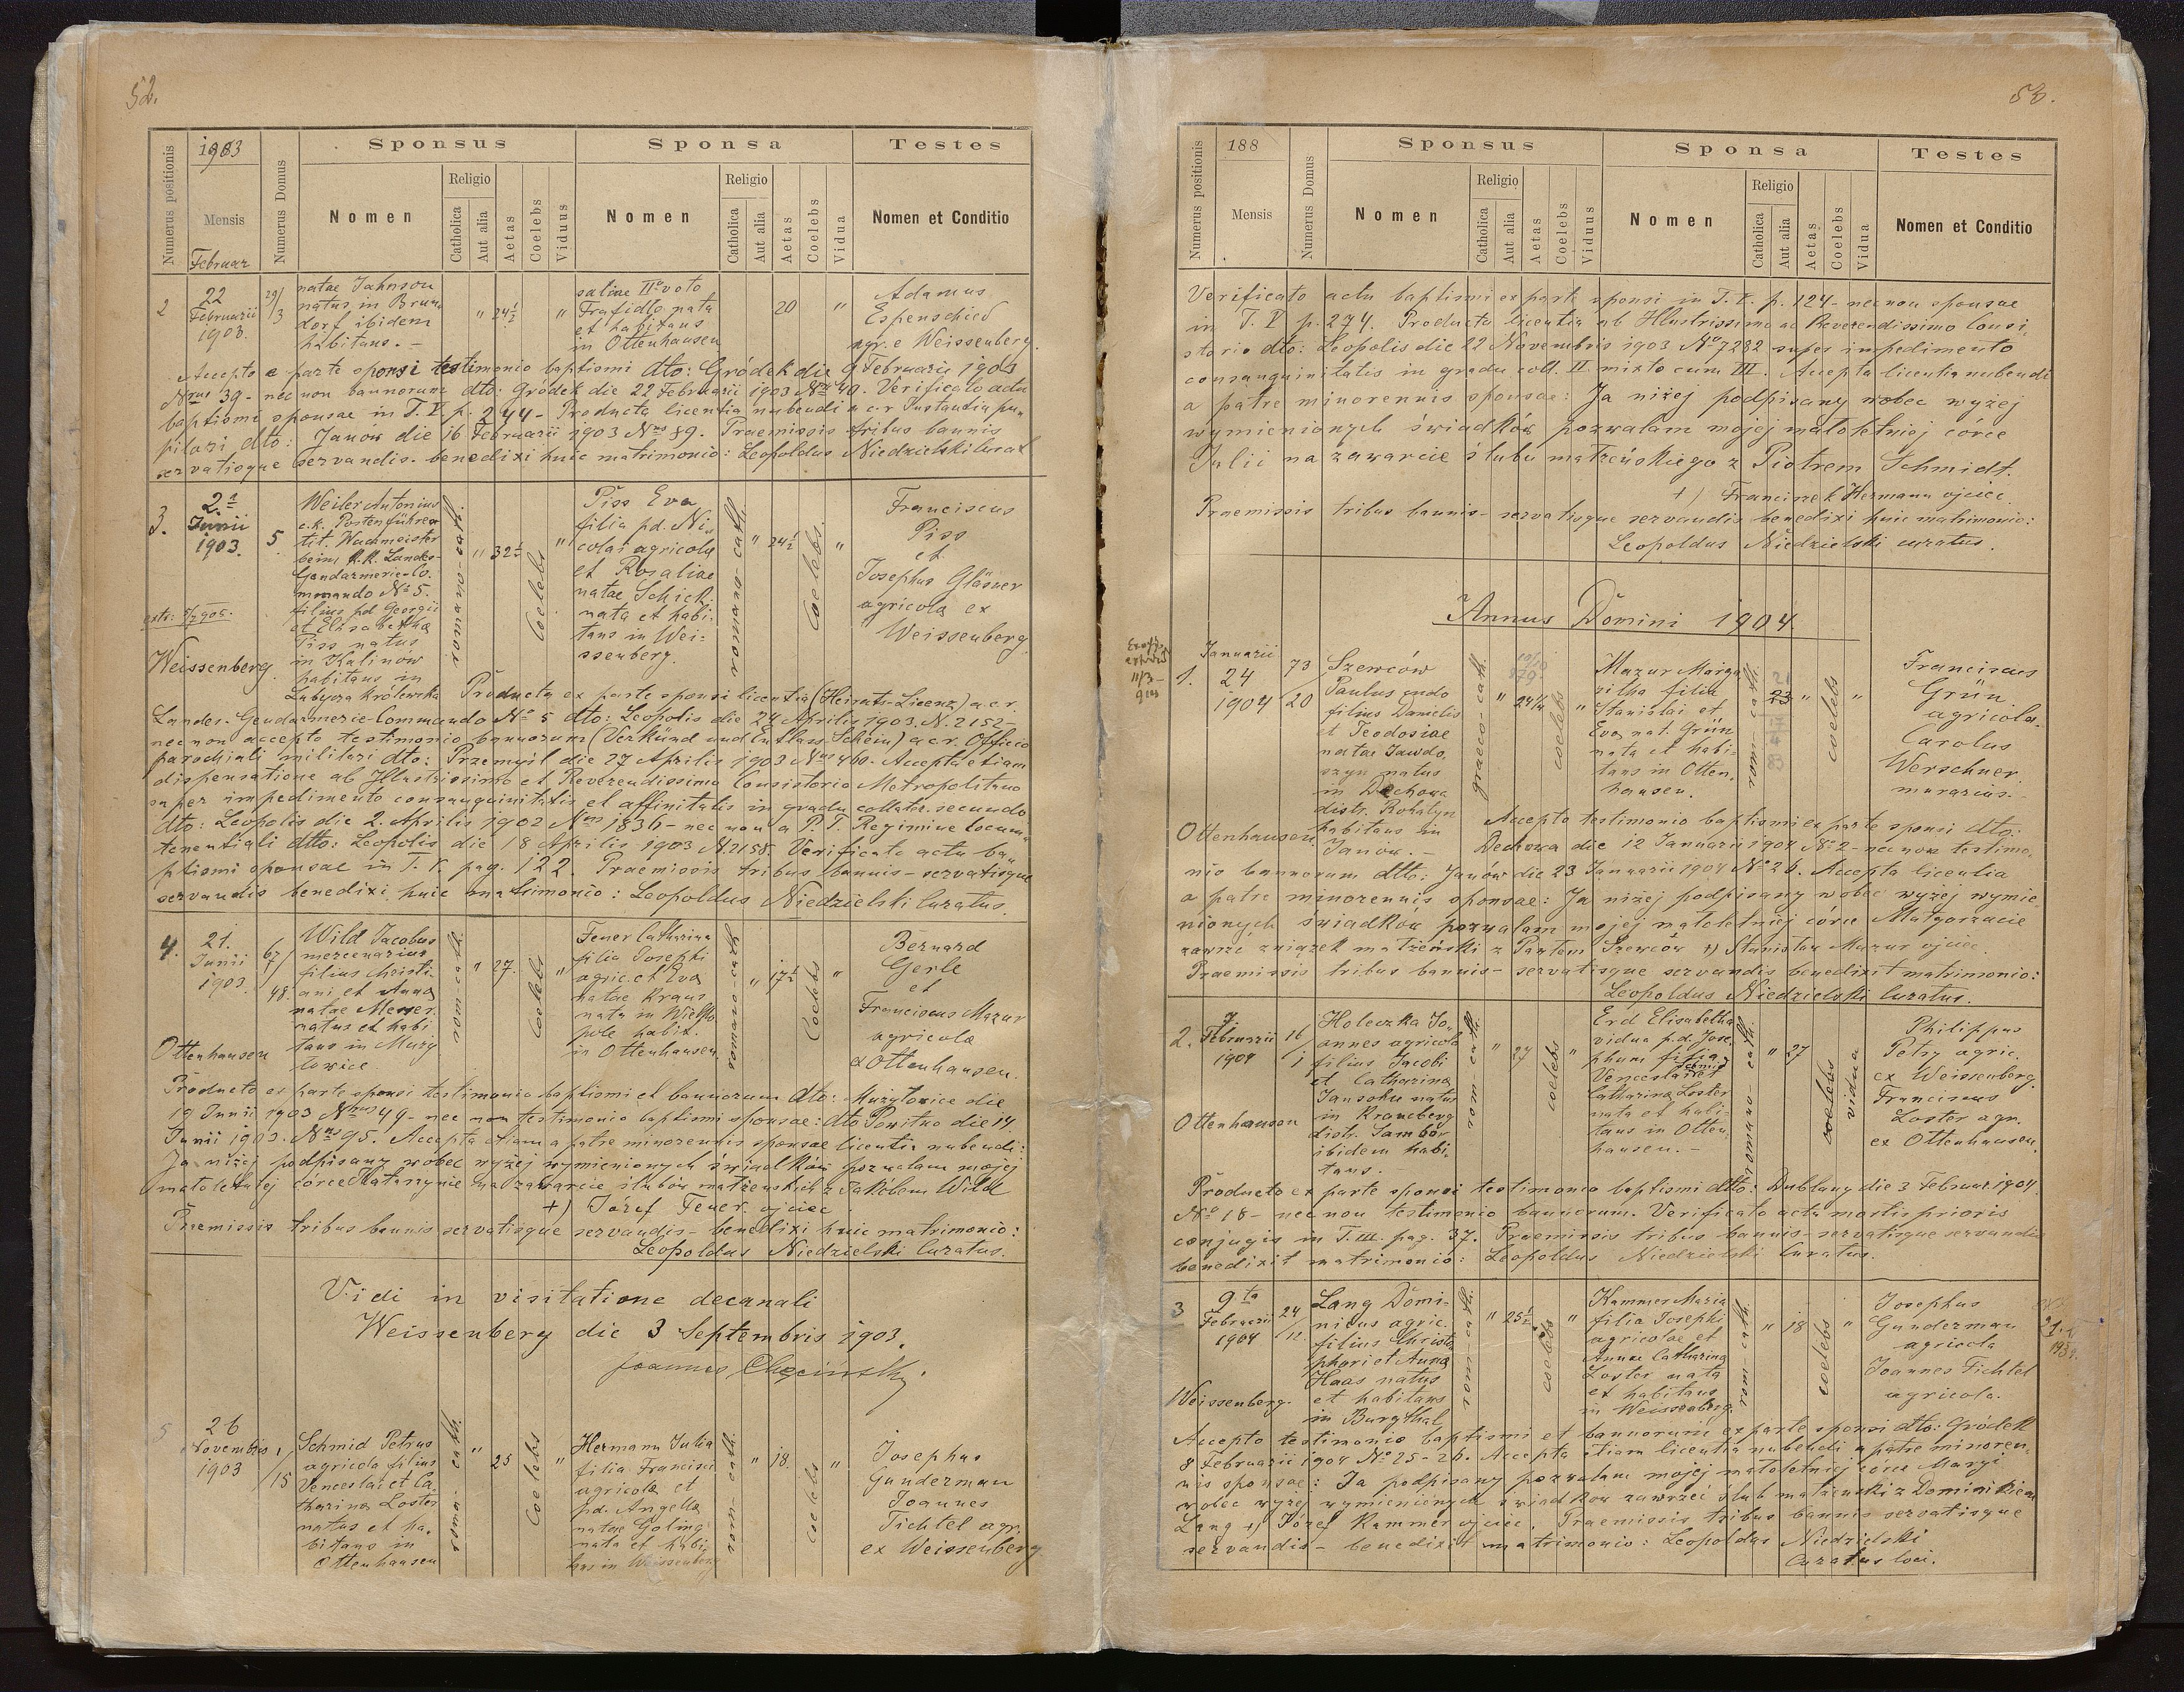 52.
1903
Sponsus
Sponsa
Testes
Numerus positionis
Mensis
Numerus Domus
Nomen
Religio
Catholica
Aut alia
Aetas
Coelebs
Viduus
Nomen
Religio
Catholica
Aut alia
Aetas
Coelebs
Vidua
Nomen et Conditio
Februar
2
22
Februarii
1903.
29/
3
natae Jahnson
natus in Brun
dorf ibidem
habitans. –
" 24½ "
saliae II voto
Trafidlo nata
et habitans
in Ottenhausen
20 "
Adamus
Espenschied
agr. e Weissenberg.
Accepto e parte sponsi testimonio baptismi dto: Gródek die 9 Februarii 1903
Nrus 39 - nec non bannorum dto: Gródek die 22 Februarii 1903 Nrus 40. Verificato actu
baptismi sponsae in T. V. p. 244 - Producta licentia nubendi a c.r Instantia pu-
pilari dto: Janów die 16 Februarii 1903 Nrus 89. Praemissis tribus bannis
servatisque servandis - benedixi huic matrimonio: Leopoldus Niedzielski Curat
3.
2.a
Junii
1903.
5.
extr: 5/7 905.
Weissenberg.
Weiler Antonius
c.k. Postenführer
tit. Wachmeister
beim k.k. Landes-
Gendarmerie-Co-
mmando No 5.
filius pd. Georgii
et Elisabetha
Piss natus
in Kalinów
habitans in
Lubycza Królewska
romano-cath.
" 32½
Coelebs
"
Piss Eva
filia pd. Ni-
colai agricolae
et Rosaliae
natae Schick
nata et habi-
tans in Wei-
ssenberg.
romano-cath.
" 24½
Coelebs.
"
Franciscus
Piss
et
Josephus Gläsner
agricola ex
Weissenberg
Producta ex parte sponsi licentia (Heirats-Licenz) a c.r.
Landes-Gendarmerie-Commando No 5 dto: Leopolis die 24 Aprilis 1903. N. 2152 -
nec non accepto testimonio bannorum (Verkünd und Entlass Schein) a c.r. Officio
parochiali militari dto: Przemyśl die 27 Aprilis 1903 Nrus 460. Accepta etiam
dispensatione ab Illustrissimo et Reverendissimo Consistorio Metropolitano
super impedimento consanguinitatis et affinitatis in gradu collater. secundo
dto: Leopolis die 2. Aprilis 1902 Nrus 1836 - nec non a P. T. Regimine locum-
tenentiali dtto: Leopolis die 18 Aprilis 1903 N. 2158. Verificato actu ba-
ptismi sponsae in T. V. pag. 122. Praemissis tribus bannis - servatisque
servandis benedixi huic matrimonio: Leopoldus Niedzielski Curatus.
4.
21.
Junii
1903.
67/
48.
Ottenhausen
Wild Jacobus
mercenarius
filius Christi-
ani et Anna
natae Meyer.
natus et habi
tans in Muży
łowice
rom-cath.
" 27.
Coelebs
"
Feuer Catharina
filia Josephi
agric. et Eva
natae Kraus
nata in Wielko
pole habit.
in Ottenhausen.
romano-cath
" 17½
Coelebs
"
Bernard
Gerle
et
Franciscus Mazur
agricolae
ex Ottenhausen.
Producto ex parte sponsi testimonio baptismi et bannorum dto: Mużyłowice die
19 Junii 1903 Nrus 49 - nec non testimonio baptismi sponsae: dto Powitno die 14
Junii 1903. Nrus 95. Accepta etiam a patre minorennis sponsae licentia nubendi:
Ja niżej podpisany wobec wyżej wymienionych świadków pozwalam mojej
małoletniej córce Katarzynie na zawarcie ślubów małżeńskich z Jakóbem Wild
+) Józef Feuer ojciec.
Praemissis tribus bannis servatisque servandis - benedixi huic matrimonio:
Leopoldus Niedzielski Curatus.
Vidi in visitatione decanali
Weissenberg die 3 Septembris 1903.
Joannes Chęciński
5
26
Novembris
1903
1/
15
Schmid Petrus
agricola filius
Venceslai et Ca-
tharina Loster
natus et ha-
bitans in
Ottenhausen
roma-cath.
" 25
Coelebs
"
Hermann Julia
filia Francisci
agricolae et
pd. Angella
natae Goling
nata et habi-
tans in Weissenberg
rom-cath.
" 18.
coelebs
"
Josephus
Gunderman
Joannes
Tichtel agr.
ex Weissenberg
53.
188
Sponsus
Sponsa
Testes
Numerus positionis
Mensis
Numerus Domus
Nomen
Religio
Catholica
Aut alia
Aetas
Coelebs
Viduus
Nomen
Religio
Catholica
Aut alia
Aetas
Coelebs
Vidua
Nomen et Conditio
Verificato actu baptismi ex parte sponsi in T. V. p. 124 - nec non sponsae
in T. V p. 274. Producta licentia ab Illustrissimo ac Reverendissimo Consi-
storio dto: Leopolis die 22 Novembris 1903 No 7282 super impedimento
consanguinitatis in gradu coll. II. mixto cum III. Accepta licentia nubendi
a patre minorennis sponsae: Ja niżej podpisany wobec wyżej
wymienionych świadków pozwalam mojej małoletniej córce
Julii na zawarcie ślubu małżeńskiego z Piotrem Schmidt.
+) Franciszek Hermann ojciec
Praemissis tribus bannis - servatisque servandis benedixi huic matrimonio:
Leopoldus Niedzielski curatus.
Annus Domini 1904
1.
Januarii
24
1904
73
20
Ottenhausen
Szewców
Paulus
filius Danielis
et Teodosiae
natae Jawdo-
szyn natus
in Dechowa
distr. Rohatyn
habitans in
Janów. –
graeco-cath.
" 24¼
coelebs
"
Mazur Marga
ritha filia
Stanislai et
Eva nat. Grün
nata et habi-
tans in Otten-
hausen.
rom-cath.
23 "
coelebs
"
Franciscus
Grün
agricola.
Carolus
Werschner
murarius. –
Accepto testimonio baptismi ex parte sponsi dto:
Dechowa die 12 Januarii 1904 No 2 - nec non testimo-
nio bannorum dtto: Janów die 23 Januarii 1904 No 26. Accepta licentia
a patre minorennis sponsae: Ja niżej podpisany wobec wyżej wymie-
nionych świadków pozwalam mojej małoletniej córce Małgorzacie
zawrzć związek małżeński z Pawłem Szewców +) Stanisław Mazur ojciec
Praemissis tribus bannis - servatisque servandis benedixit matrimonio:
Leopoldus Niedzielski Curatus.
2.
7
Februarii
1904
16/
1
Ottenhausen
Holeczka Jo-
annes agricola
filius Jacobi
et Catharina
Jansohn natus
in Kranzberg
distr. Sambor
ibidem habi-
tans. –
rom-cath.
" 27
coelebs
"
Erd Elisabetha
vidua p.d. Jose-
phum filia
Schmid
Venceslai et
Catharina Loster
nata et habi-
tans in Otten-
hausen. –
romano cath.
" 27
coelebs
vidua
Philippus
Petry agric.
ex Weissenberg.
Franciscus
Loster agr.
ex Ottenhausen.
Producto ex parte sponsi testimonio baptismi dtto: Dublany die 3 Februar. 1904
No 18 - nec non testimonio bannorum. Verificato actu mortis prioris
conjugis in T. III. pag. 37. Praemissis tribus bannis - servatisque servandis
benedixit matrimonio: Leopoldus Niedzielski Curatus.
3
9ta
Februarii
1904
24
12.
Weissenberg.
Lang Domi-
nicus agric.
filius Christo
phori et Anna
Haas natus
et habitans
in Burgthal
rom-cath.
" 25½
coelebs
"
Kammer Maria
filia Josephi
agricolae et
Annae Catharina
Loster nata
et habitans
in Weissenberg.
rom-cath.
" 18
coelebs
"
Josephus
Gunderman
agricola
Joannes Tichtel
agricola.
Accepto testimonio baptismi et bannorum ex parte sponsi dto: Gródek
8 Februarii 1904 No 25-26. Accepta etiam licentia nubendi a patre minoren-
nis sponsae: Ja podpisany pozwalam mojej małoletniej córce Maryi
wobec wyżej wymienionych świadków zawrzeć ślub małżeński z Dominikiem
Lang +) Józef Kammer ojciec. Praemissis tribus bannis servatisque
servandis - benedixit matrimonio: Leopoldus Niedzielski
Curatus loci.